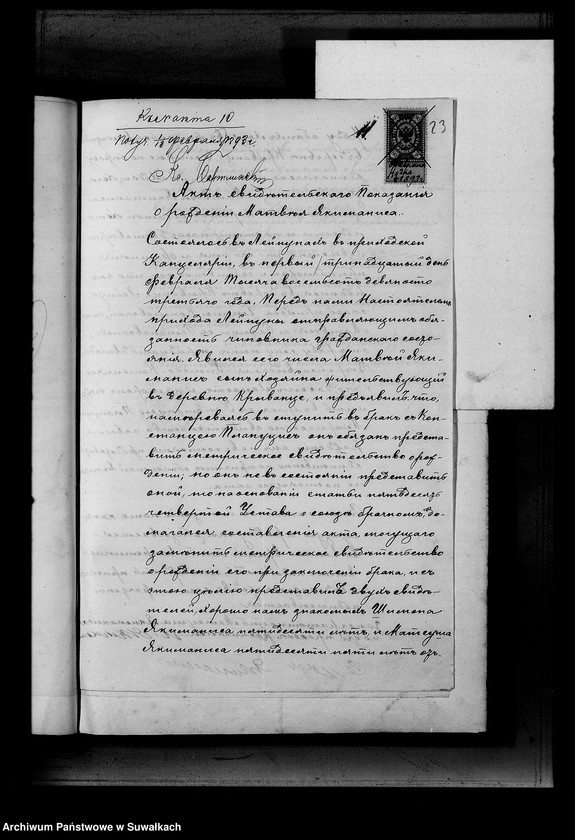 Къ акта 10
23
Актъ свидѣтельскаго показанія
о рожденіи Матвѣя Якиманиса.
Состоялось въ Лейпунахъ въ приходской
Канцеляріи, въ первый/тринадцатый день
Февраля тысяча восемьсотъ девяносто
третьяго года. Передъ нами Настоятелемъ
прихода Лейпуны отправляющимъ обя-
занность чиновника гражданскаго состо-
янія, явился сего числа Матвѣй Яки-
манисъ сынъ хозяина жительствующій
въ деревнѣ и предъявилъ что,
намѣреваясь вступить въ бракъ съ Кон-
станціею онъ обязанъ предста-
вить метрическое свидѣтельство о рож-
деніи; но онъ не въ состояніи представить
оной, то на основаніи статьи пятьдесятъ
четвертой Устава о союзѣ брачномъ, до-
магался составленія акта, могущаго
замѣнить метрическое свидѣтельство
о рожденіи его при заключеніи брака, и съ
этою цѣлію представилъ двухъ свидѣ-
телей, хорошо намъ знакомыхъ Шимона
Якиманиса пятидесяти лѣтъ, и Матеуша
Якиманиса пятидесяти пяти лѣтъ
Archiwum Państwowe w Suwałkach